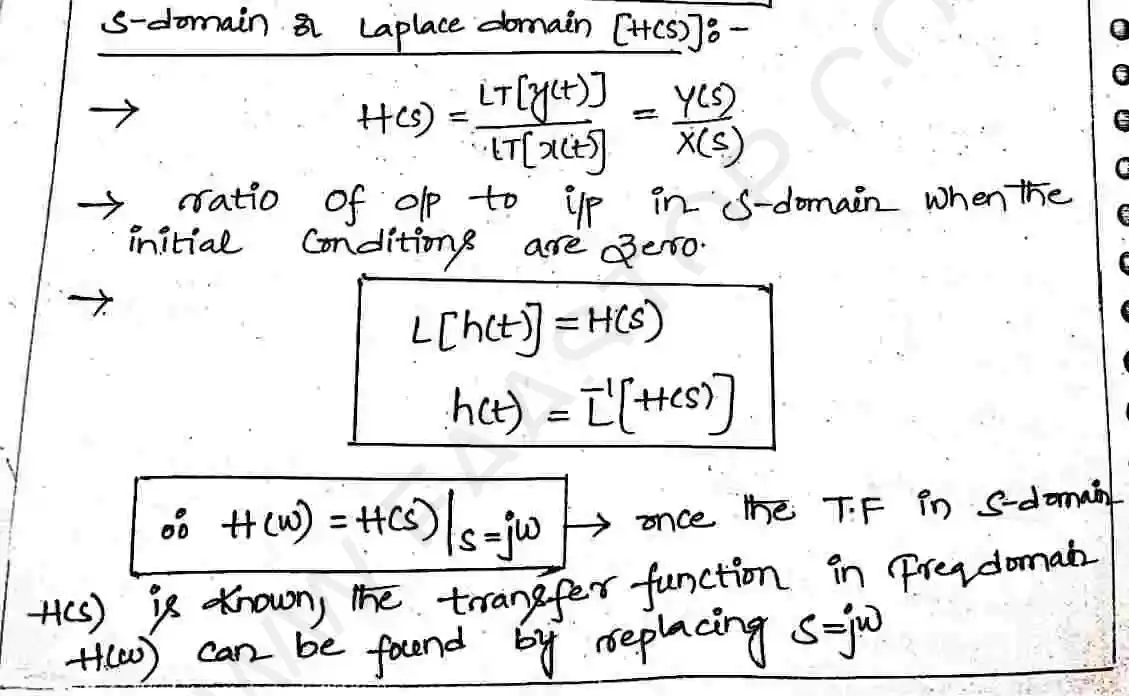 S-domain or Laplace domain [H(s)]:-
→ H(s) = LT[y(t)] / LT[x(t)] = Y(s) / X(s)
→ ratio of o/p to i/p in S-domain when the
initial Conditions are zero.
→ L[h(t)] = H(s)
h(t) = L⁻¹[H(s)]
∴ H(w) = H(s)|s=jw → once the T.F in S-domain
H(s) is known, the transfer function in Freqdomain
H(w) can be found by replacing S=jw